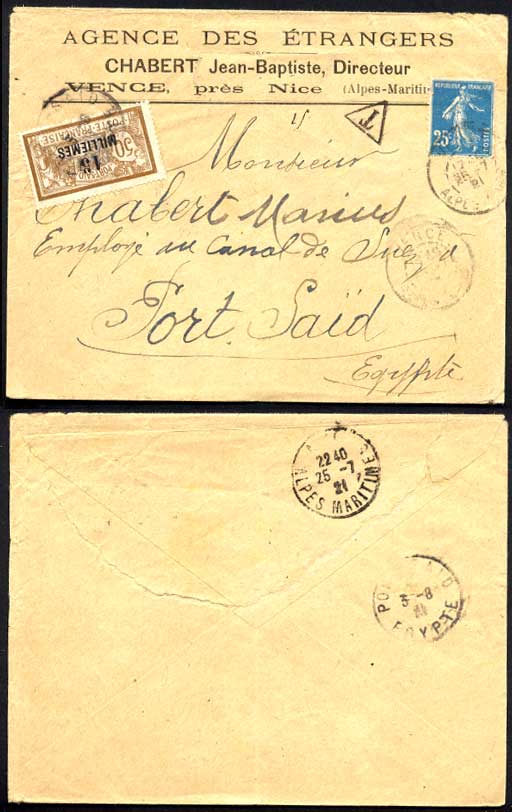 AGENCE DES ÉTRANGERS
CHABERT Jean-Baptiste, Directeur
VENCE, près Nice (Alpes-Mariti
T
REPUBLIQUE FRANÇAISE
25c
POSTES
POSTE FRANÇAISE
50
PORT-SAID
15
MILLIEMES
Monsieur
Chabert Marius
Employé au Canal de Suez à
Port. Saïd
Egypte
22 40
25 -7
21
ALPES MARITIMES
PO D
3 -8
21
EGYPTE